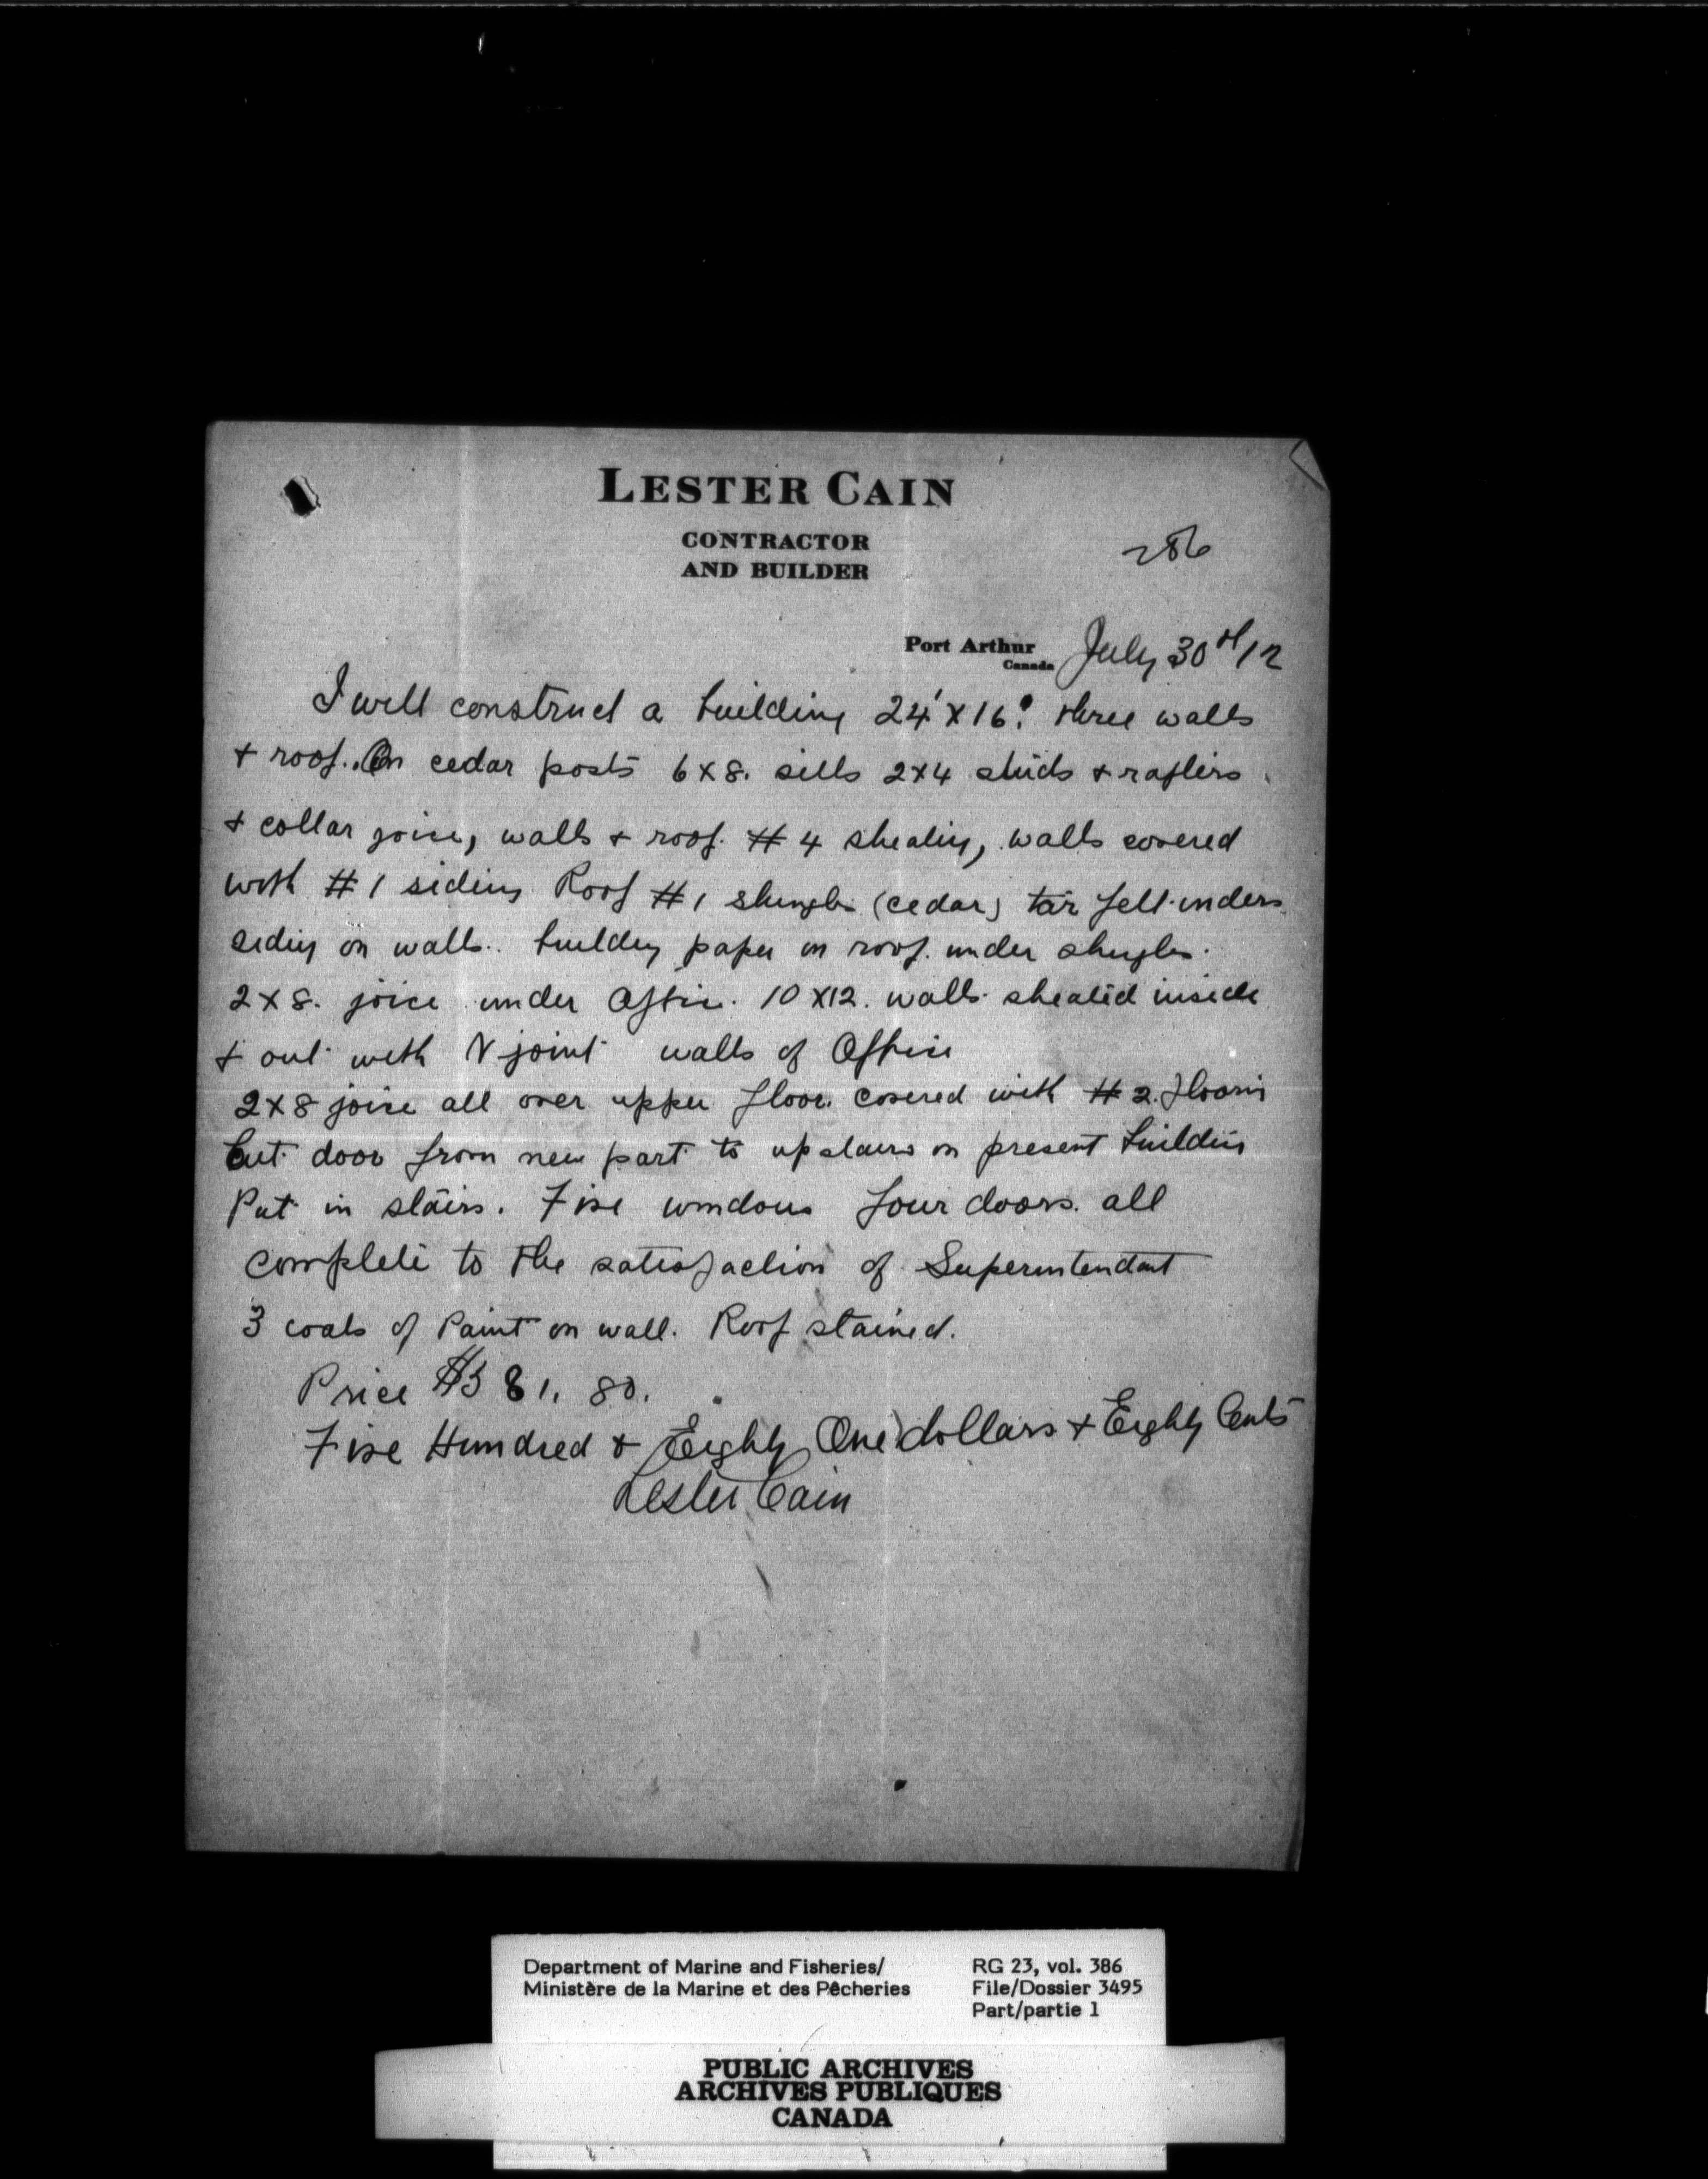 LESTER CAIN
CONTRACTOR
AND BUILDER
286
Port Arthur
Canada
July 30th/12
I will construct a building 24' X 16' three walls
+ roof. On cedar posts 6 X 8. sills 2 X 4 studs + rafters
+ collar joice, walls + roof. # 4 sheating, walls covered
with # 1 siding Roof # 1 shingles (cedar) tar felt under
siding on walls. building paper on roof. under shingles.
2 X 8. joice under Office. 10 X 12. walls sheated inside
+ out with V joint walls of Office
2 X 8 joice all over upper floor. covered with # 2. flooring
Cut door from new part to upstairs on present building
Put in stairs. Five windows four doors. all
complete to the satisfaction of Superintendant
3 coats of Paint on wall. Roof stained.
Price $581.80.
Five Hundred & Eighty One dollars + Eighty Cents
Lester Cain
Department of Marine and Fisheries/
Ministère de la Marine et des Pêcheries
RG 23, vol. 386
File/Dossier 3495
Part/partie 1
PUBLIC ARCHIVES
ARCHIVES PUBLIQUES
CANADA